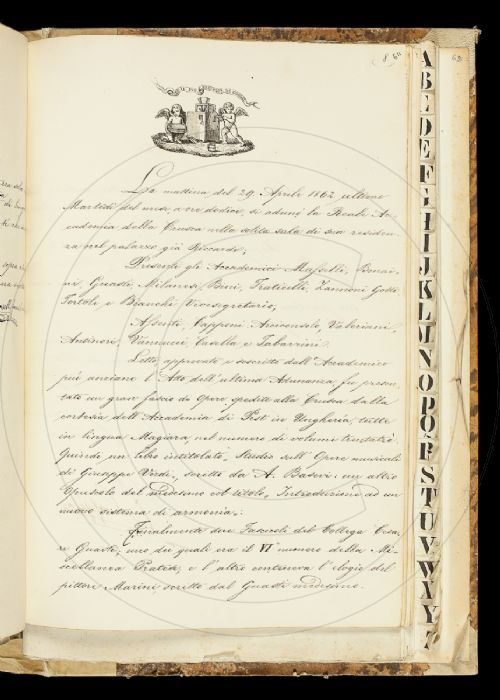 La mattina del 29 Aprile 1862, ultimo
Martedì del mese, a ore dodici, si adunò la Reale Ac-
cademia della Crusca nella solita sala di sua residen-
za nel palazzo già Riccardi.
Presenti gli Accademici Masselli, Bonai-
ni, Guasti, Milanesi, Bini, Fraticelli, Zannoni,
Tortoli e Bianchi Vicesegretario,
Assenti, Capponi Arciconsolo, Valeriani,
Antinori, Vannucci, Casella e Tabarrini.
Letto approvato e soscritto dall'Accademico
più anziano l'Atto dell'ultima Adunanza, fu presen-
tato un gran fascio di Opere spedite alla Crusca dalla
cortesia dell'Accademia di Pest in Ungheria, tutte
in lingua Magiara, nel numero di volumi trentatrè.
Quindi un libro intitolato, Studio sull'Opere musicali
di Giuseppe Verdi, scritto da A. Basevi: un altro
Opuscolo del medesimo col titolo, Introduzione ad un
nuovo sistema di armonia.:
Finalmente due Fascicoli del Collega Cesa-
re Guasti, uno dei quali era il VI° numero della Mi-
scellanea Pratese, e l'altro conteneva l'elogio del
pittore Marini scritto dal Guasti medesimo.
A
B
C
D
E
F
G
H
I
J
K
L
M
N
O
P
Q
R
S
T
U
V
W
X
Y
Z